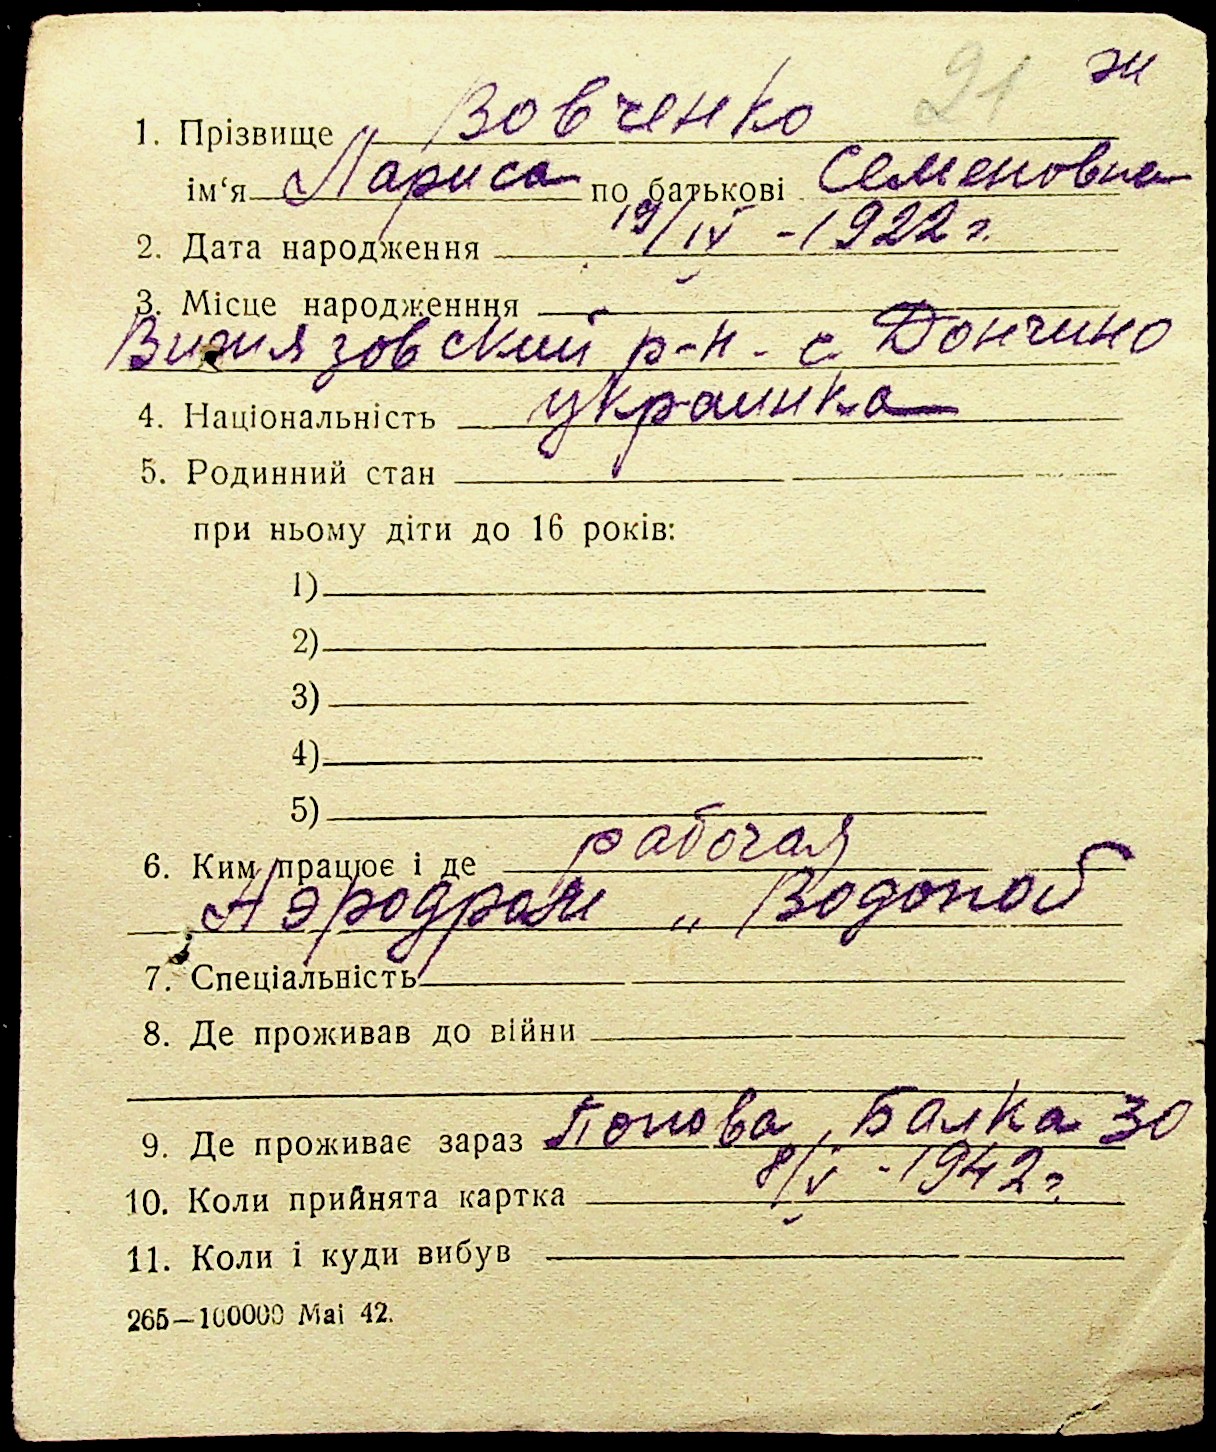 21 эи
1. Прізвище Вовченко
ім‘я Лариса по батькові Семеновна
2. Дата народження 19/IV - 1922 г.
3. Місце народженння
р-н - с. Дончино
4. Національність украинка
5. Родинний стан
при ньому діти до 16 років:
1)
2)
3)
4)
5)
6. Ким працює і де рабочая
Аэродром „ Водопой
7. Спеціальність
8. Де проживав до війни
9. Де проживає зараз Попова Балка 30
10. Коли прийнята картка 8/V - 1942 г.
11. Коли і куди вибув
265—100000 Mai 42.